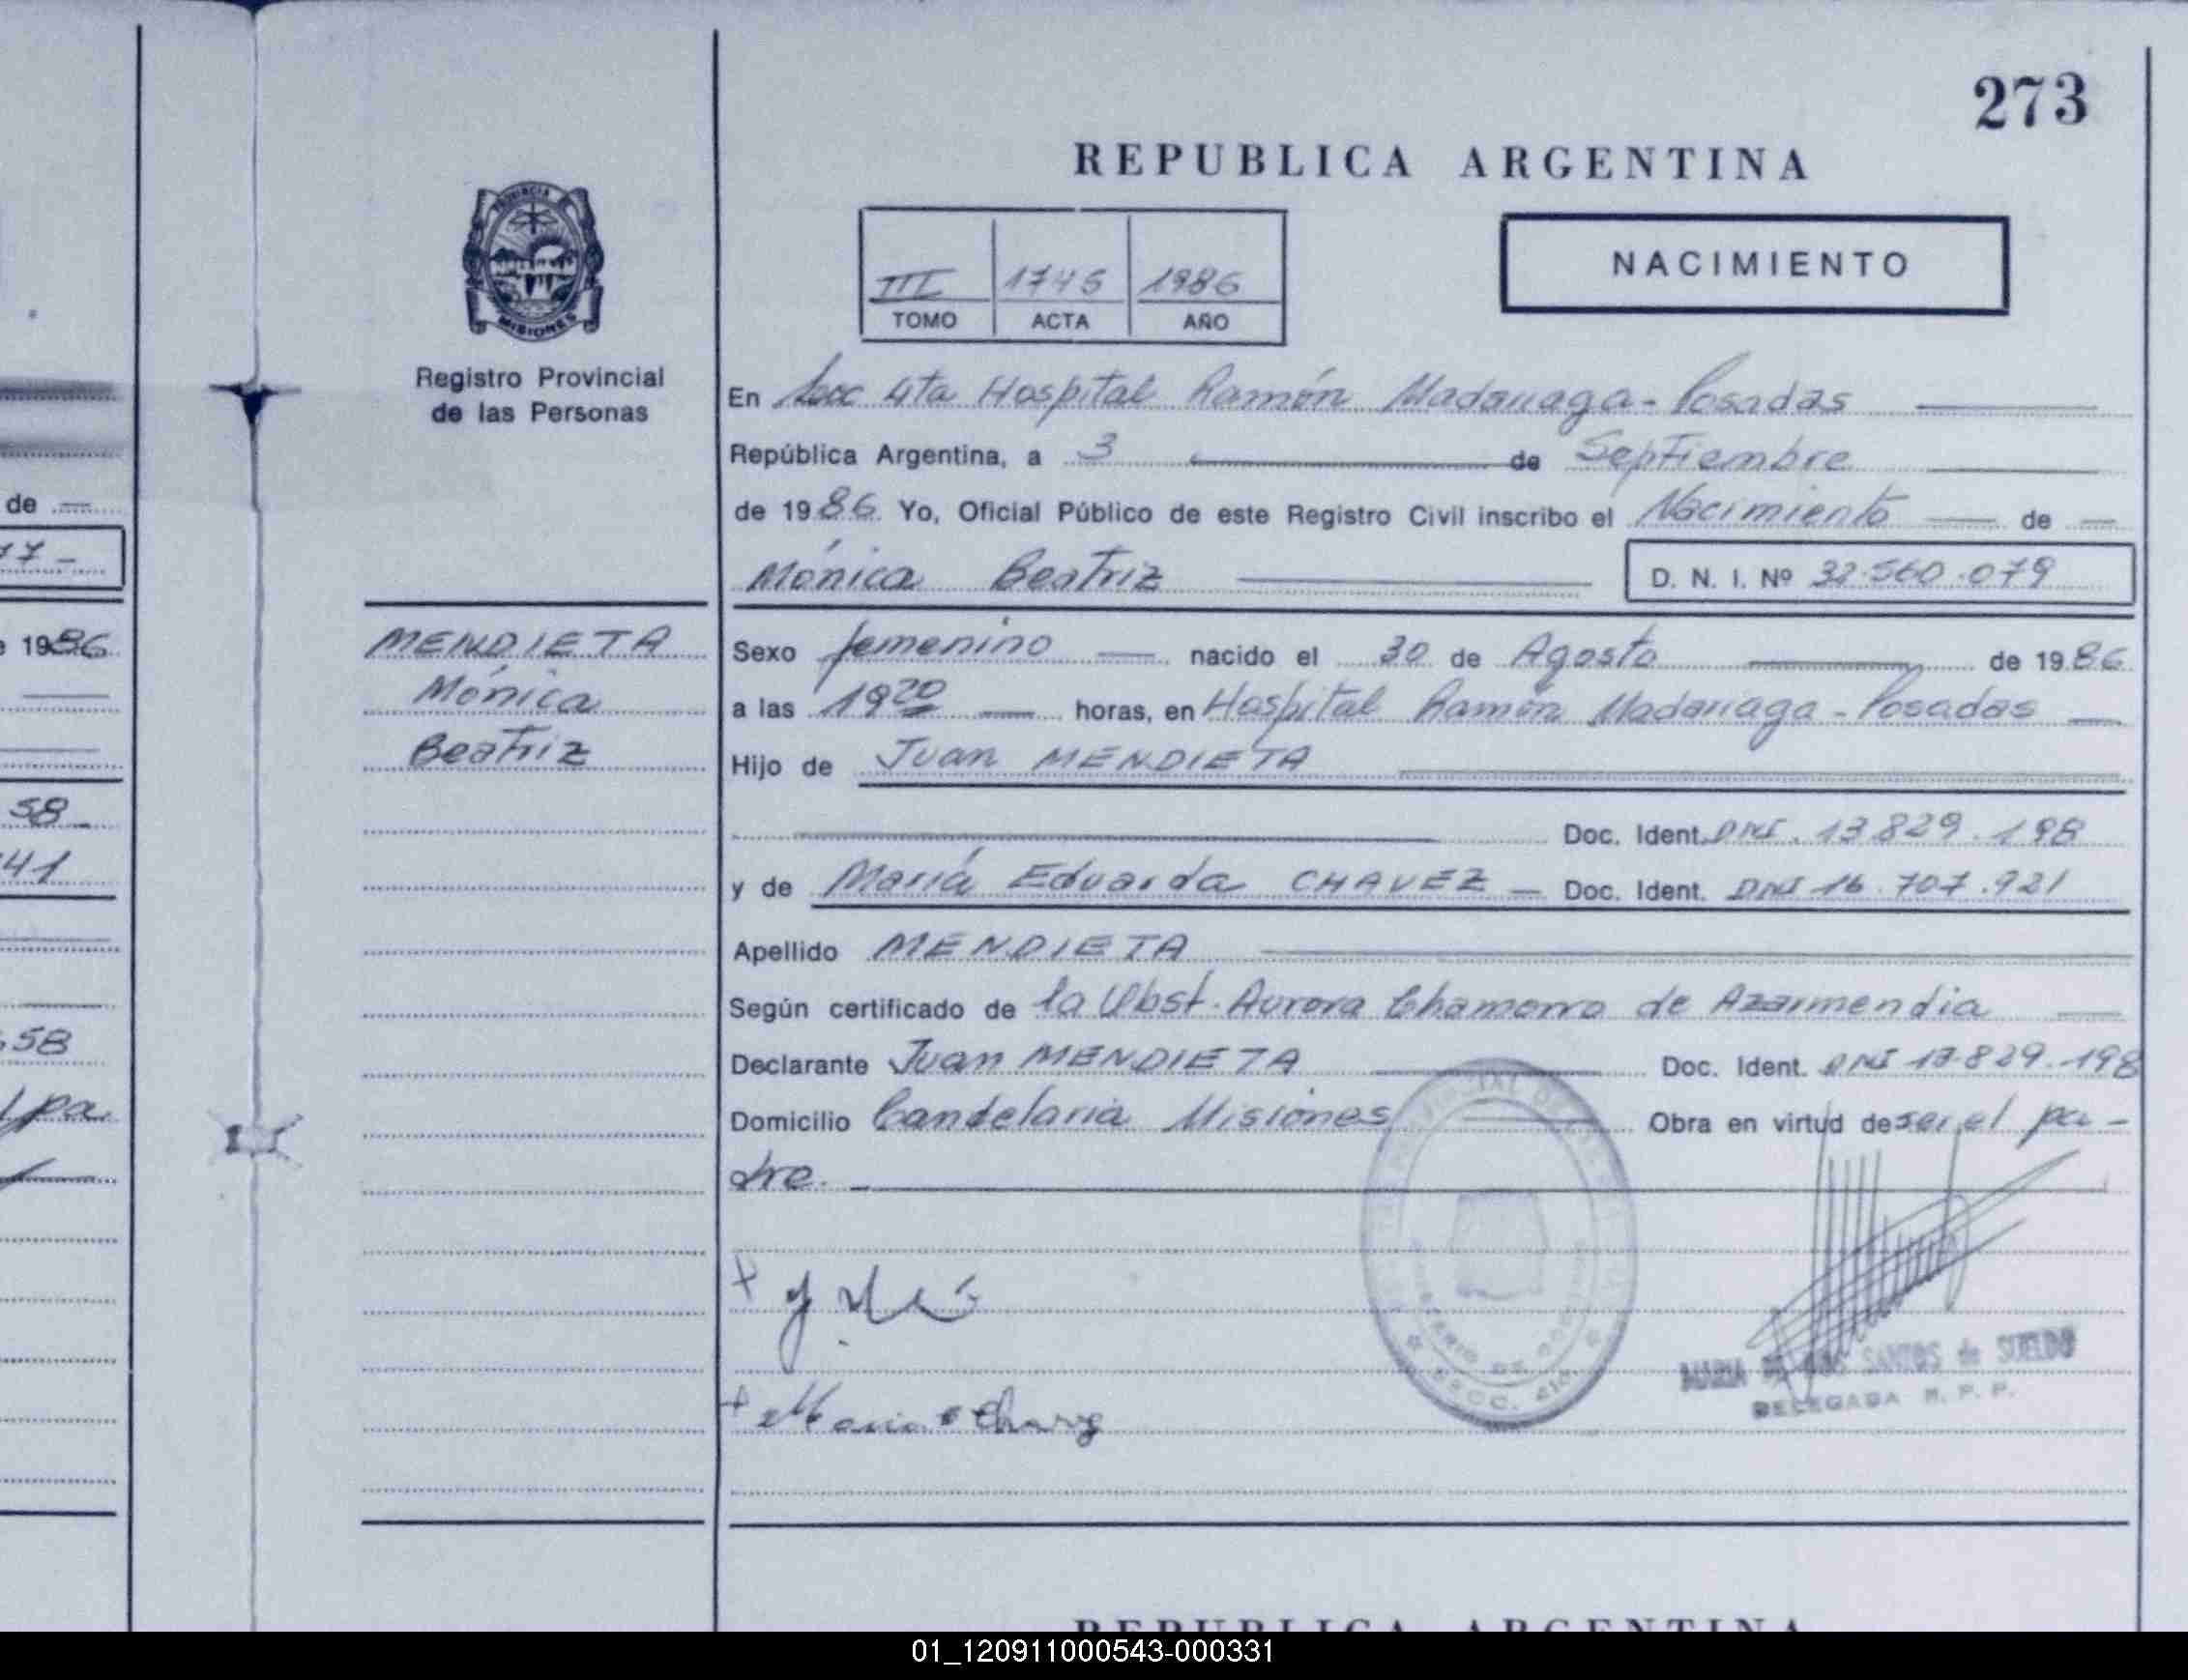 273
REPUBLICA ARGENTINA
PROVINCIA
MISIONES
Registro Provincial
de las Personas
III 1745 1986
TOMO ACTA AÑO
NACIMIENTO
En Secc 4ta Hospital Ramón Madariaga - Posadas
República Argentina, a 3 de Septiembre
de 1986 Yo, Oficial Público de este Registro Civil inscribo el Nacimiento de
Mónica Beatriz D. N. I. Nº 32.560.079
MENDIETA
Mónica
Beatriz
Sexo femenino nacido el 30 de Agosto de 1986
a las 19 20 horas, en Hospital Ramón Madariaga - Posadas
Hijo de Juan MENDIETA
Doc. Ident. DNI. 13.829.198
y de María Eduarda CHAVEZ Doc. Ident. DNI 16.707.921
Apellido MENDIETA
Según certificado de la Obst. Aurora Chamorro de Azarmendia
Declarante Juan MENDIETA Doc. Ident. DNI 13.829.198
Domicilio Candelaria Misiones Obra en virtud de ser el pa-
dre.
SANTOS de SUELDO
DELEGADA R. P. P.
de
77 -
1986
58
41
58
pa
REPUBLICA ARGENTINA
01_120911000543-000331